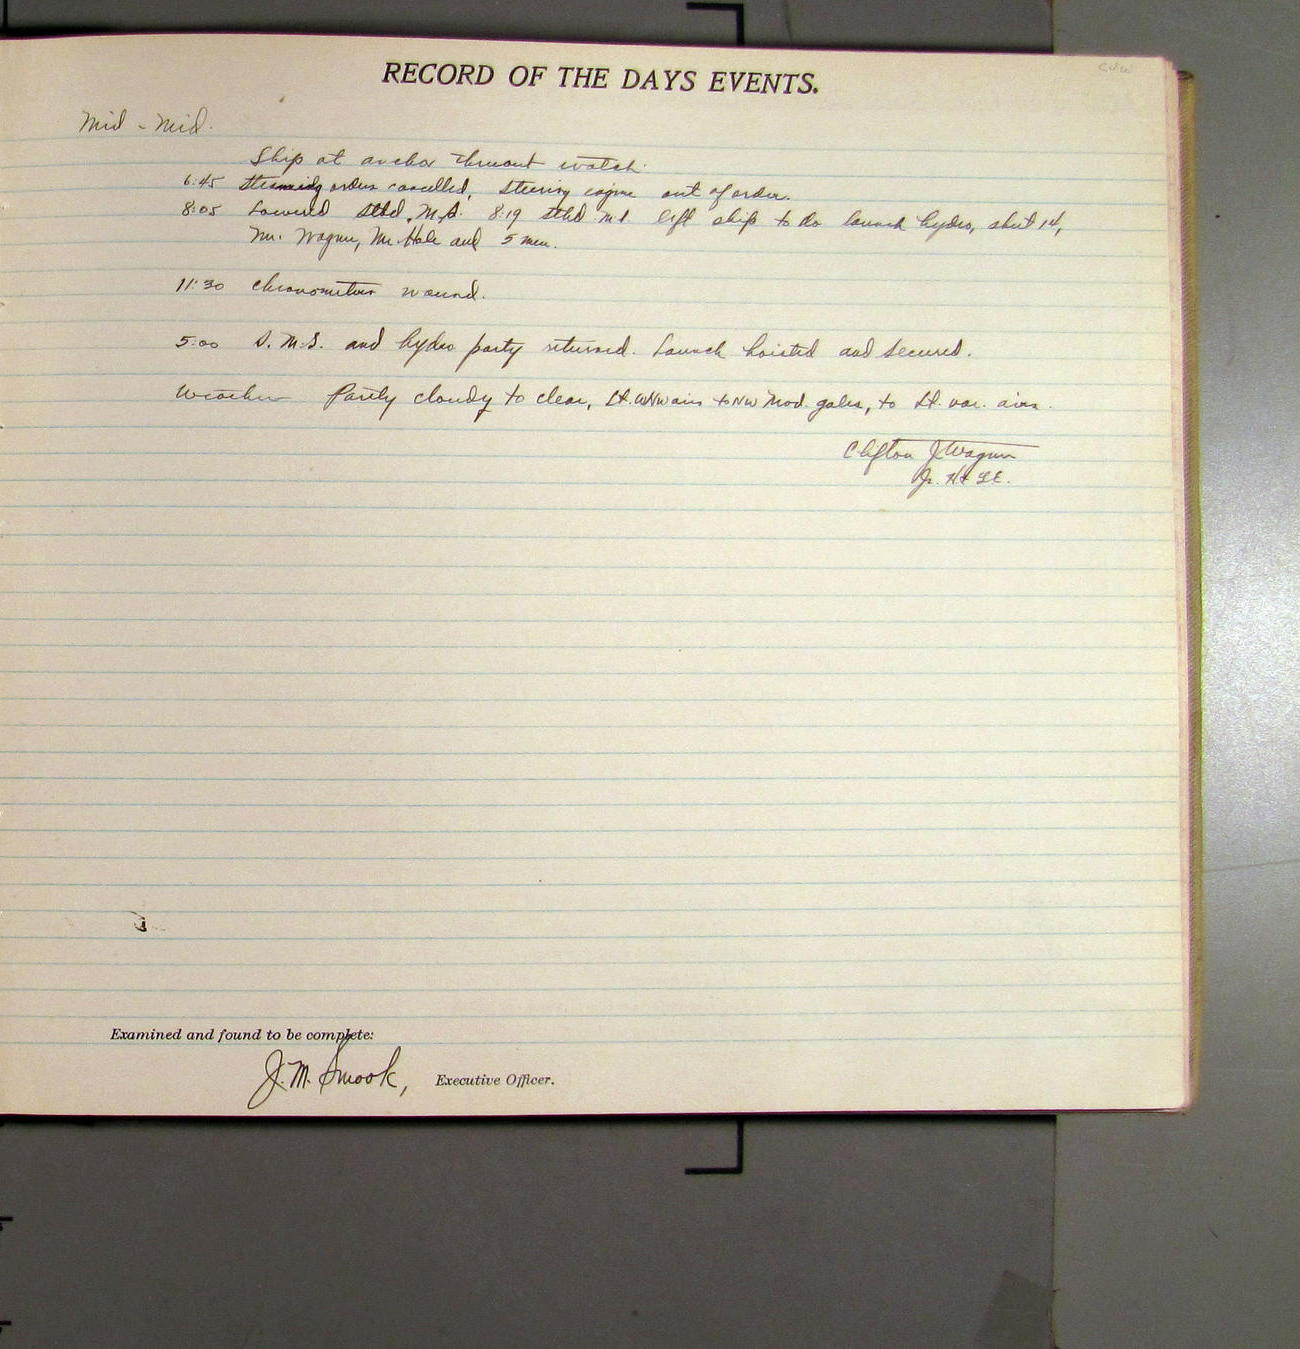 RECORD OF THE DAYS EVENTS.
Mid - Mid.
Ship at anchor thruout watch.
6:45 Steaming orders cancelled, steering engine out of order.
8:05 Lowered Stbd. M.S. 8:19 Stbd. left ship to do launch hydro, sheet 14,
Mr. Wagner, Mr. Hale and 5 men.
11:30 Chronometers wound.
5:00 S.M.S. and hydro party returned. Launch hoisted and secured.
Weather Partly cloudy to clear, Lt. WNW airs to NW Mod. gales, to Lt. var. airs.
Clifton J. Wagner
Jr. H & GE.
Examined and found to be complete:
J. M. Smook, Executive Officer.